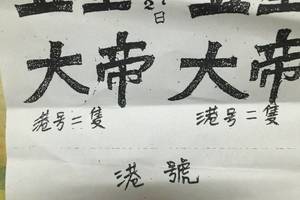 2
日
大帝 大帝
港号二隻 港号二隻
港號